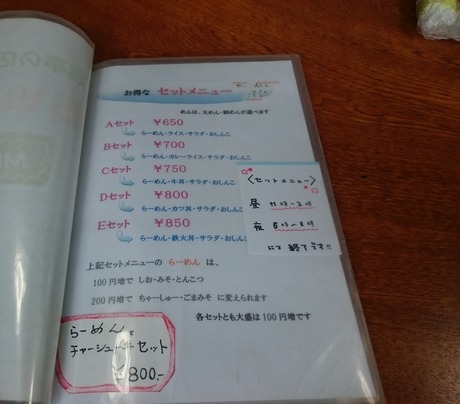 お得な セットメニュー
めんは、太めん・細めんが選べます
Aセット ￥650
らーめん・ライス・サラダ・おしんこ
Bセット ￥700
らーめん・カレーライス・サラダ・おしんこ
Cセット ￥750
らーめん・牛丼・サラダ・おしんこ
Dセット ￥800
らーめん・カツ丼・サラダ・おしんこ
Eセット ￥850
らーめん・鉄火丼・サラダ・おしんこ
〈セットメニュー〉
昼
夜
にて終了です!!
上記セットメニューの らーめん は、
100円増で しお・みそ・とんこつ
200円増で ちゃーしゅー・ごまみそ に変えられます
各セットとも大盛は100円増です
らーめん
チャーシュー丼セット
￥800.-